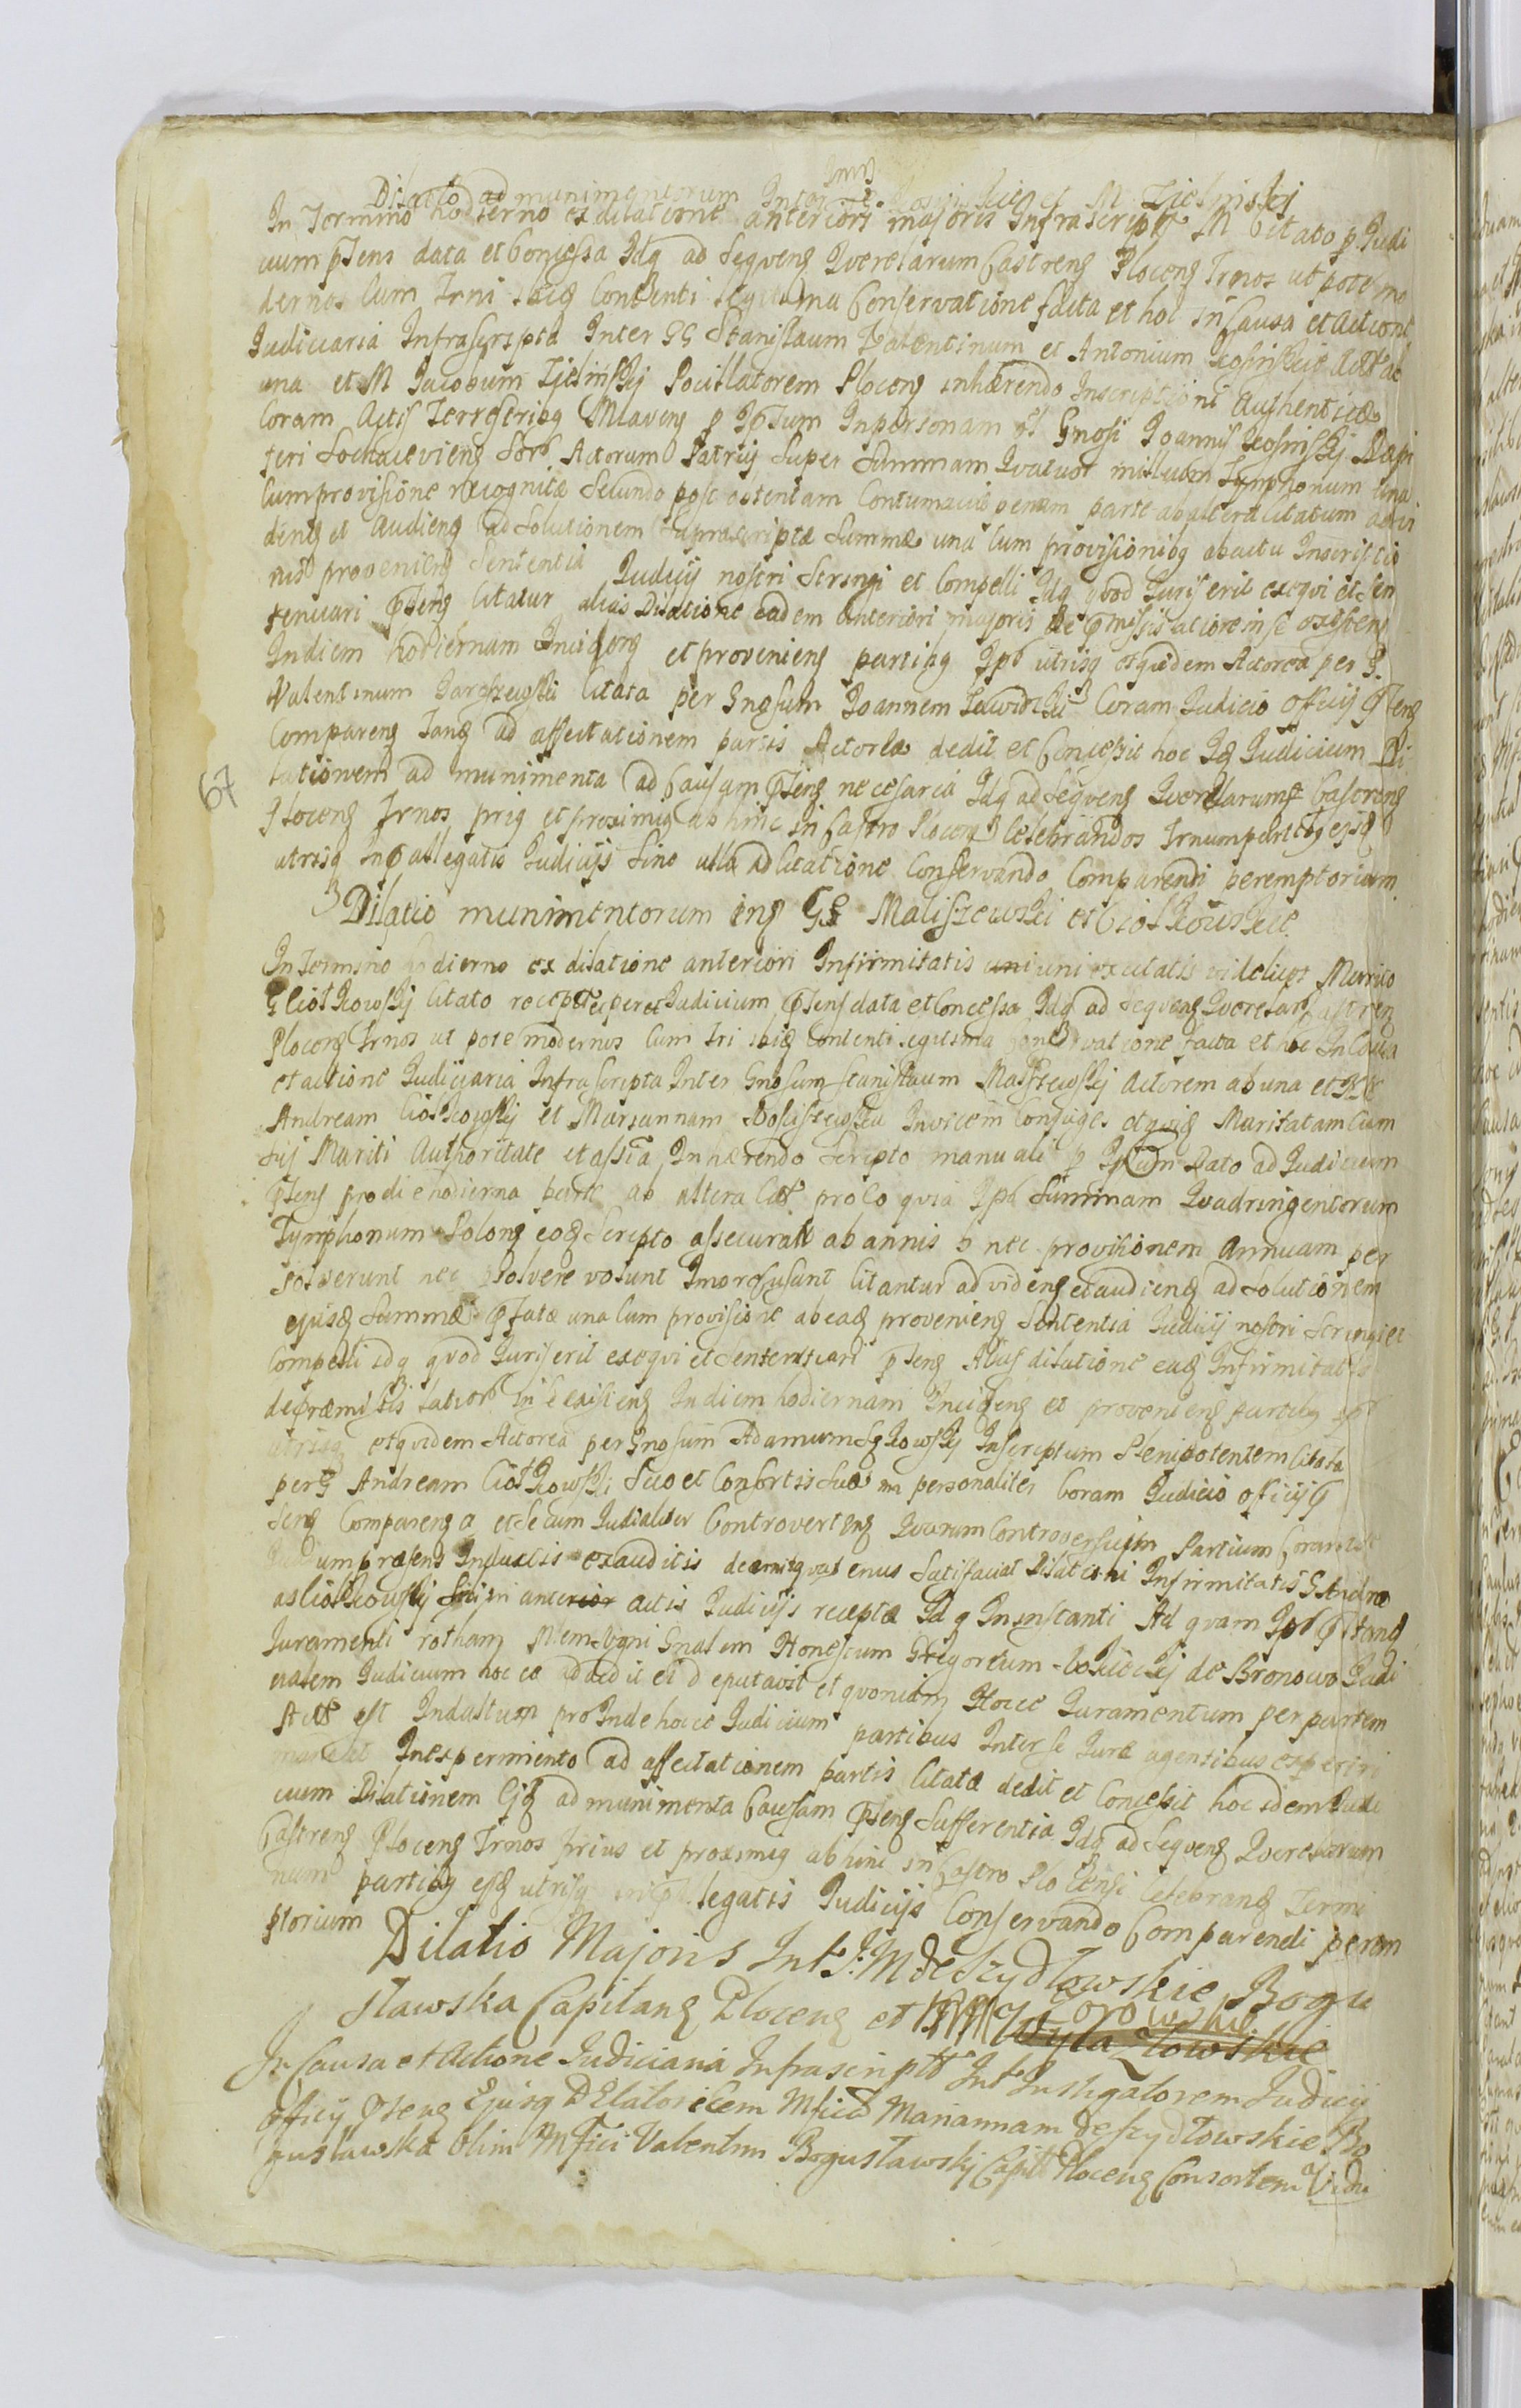 Dilatio ad munimentorum Inter et M Zielinski
In Termino hodierno ex dilatione anteriori majoris Infrascripti M Citato p Judi
cium pñens data et Concessa Idq ad Seqvenȝ Qverelarum Castrenȝ Plocenȝ Trnos ut pote mo
dernos Cum Trni Contenti legitima Conservatione facta et hoc in Causa et Actione
Judiciaria Infrascripta Inter GG Stanislaum Valentinum et Antonium Kosinskie Act ab
una et M Jacobum Zielinskij Pocillatorem Plocenȝ inhærendo Inscriptioni Authenticæ
Coram Actis Terrestribq Mlavenȝ p Ipsum In personam ol Gnosi Joannis Kosinskij Dapi
feri Sochacevienȝ Actorum Patrij Super Summam Qvatuor millium Tymphonum una
Cum provisione recognitæ Secundo post ostentam Contumaciæ penam parte ab altera Citatum ad vi
denȝ et Audienȝ ad Solutionem Suprascriptæ Summæ una Cum provisionibq ab actu Inscriptio
nis provenienȝ Sententia Judicij nostri Stringi et Compelli Idq qvod Juris erit exeqvi et Sen
tentiari pñens Citatur alias Dilatione eadem anteriori majoris De præmissis latiore in se existenȝ
In diem hodiernam Incidenȝ et provenienȝ partibq Ipis utrisq et qvidem Actorea per G
Valentinum Citata per Gnosum Joannem Coram Judicio Officij pñens
Comparenȝ Tanȝ ad affectationem partis Actoreæ dedit et Concessit hoc Id Judicium Di
lationem ad munimenta ad Causam pñens necesaria Idq ad Seqvenȝ Qverelarum Castrenȝ
Plocenȝ Trnos priq et proximiq ab hinc in Castro Plocenȝ Celebrandos Trnum partibq ejsȝ
utrisq In præallegatis Judicijs Sine ulla ad Citatione Conservando Comparendi peremptorium
Dilatio munimentorum inȝ GG Maliszewski et Ciołkowskie
In Termino hodierno ex dilatione anteriori Infirmitatis uni ex Citatis videlicet Marito
G Ciołkowskij Citato receptæ per Judicium pñens data et Concessa Idq ad Seqvenȝ Qverelar Castrenȝ
Plocenȝ Trnos ut pote modernos Cum Tri Contenti legitima Conservatione facta et hoc In Causa
et actione Judiciaria Infrascripta Inter Gnosum Stanislaum Maliszewskij Actorem ab una et
Andream Ciołkowskij et Mariannam Invicem Conjuges et qvidȝ Maritatam Cum
Sui Mariti Authoritate et assña Inhærendo Scripto manuali p Ipsum Dato ad Judicium
pñens pro die hodierna parte ab altera Citt pro Co qvia Ipi Summam Qvadringentorum
Tymphonum Polonȝ eoȝ Scripto assecurat ab annis 5 nec provisionem Annuam per
solverunt nec solvere volunt Imo Citantur ad videnȝ et audienȝ ad Solutionem
ejusȝ Summæ pfatæ una Cum provisione ab eaȝ provenienȝ Sententia Judicij nostri Stringi et
Compelli idq qvod Juris erit exeqvi et Sententiari pñens Alias dilatione eaȝ Infirmitatis
de præmissis latior in Se existenȝ In diem hodiernam Incidenȝ et provenienȝ partibq Ipis
utrisq et qvidem Actorea per Gnosum Adamum Inscriptum Plenipotentem Citata
per G Andream Ciołkowski Suo et Consortis Suæ nn personaliter Coram Judicio Officij p
senȝ Comparenȝ a et Secum Judialiter Controvertenȝ Qvorum Controversijm Partium Coram Se
Judium præsens Inductis exauditis decernit qvatenus Satisfaciat Dilationi Infirmitatis G Andre
as Ciołkowskij in anterior actis Judicijs receptæ Idq In instanti Ad qvam
Juramenti rotham Ministrialem Honestum Gregorium de Bronowo Judi
cialem Judicium hocce addedit et deputavit et qvoniam Hocce Juramentum per partem
Act est Indultum pro Inde hocce Judicium partibus Inter Se Jure agentibus experiri
mandat Inexpermiento ad affectationem partis Citatæ dedit et Concessit hoc idem Judi
cium Dilationem Ejȝ ad munimenta Causam pñens Sufferentia Idq ad Seqvenȝ Qverelarum
Castrenȝ Plocenȝ Trnos prius et proximiq ab hinc in Castro Plocensi Celebrandȝ Termi
num partibq ejȝ utrisq in præallegatis Judicijs Conservando Comparendi perem
ptorium
Dilatio Majoris Int J: M de Szydłowskie Bogu
sławska Capitanȝ Plocenȝ et
In Causa et Actione Judiciaria Infrascriptt Int Instigatorem Judicij
Officij psens Ejusq DElatoricem Mficã Mariannam de Szydłowskie Bo
gusławska Olim Mfici Valentini Bogusławskj Capit Plocenȝ Consortem Vidu
67